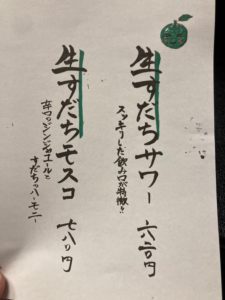 生すだちサワー 六八〇円
スッキリした飲み口が特徴!!
生すだちモスコ 七八〇円
辛口ジンジャエールと
すだちのハーモニー